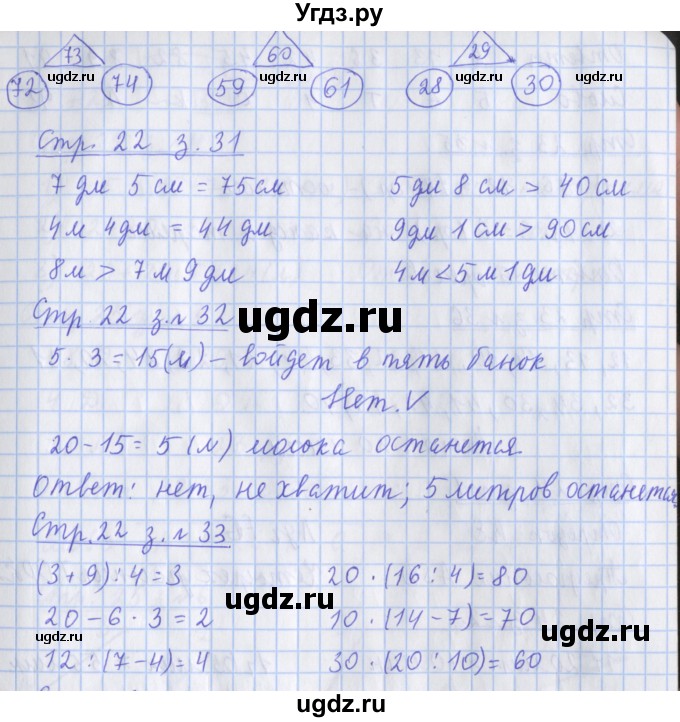 Угдз.ру
73 60 29
ugdz.ru ugdz.ru ugdz.ru
72 74 59 61 28 30
Стр. 22 з. 31
ugdz.ru ugdz.ru ugdz.ru
7 дм 5 см = 75 см 5 дм 8 см > 40 см
4 м 4 дм = 44 дм 9 дм 1 см > 90 см
8 м > 7 м 9 дм 4 м < 5 м 1 дм
Стр. 22 з. № 32
ugdz.ru
5 · 3 = 15 (л) – войдет в пять банок
Нет. V
20 – 15 = 5 (л) молока останется
Ответ: нет, не хватит; 5 литров останется
Стр. 22 з. № 33
ugdz.ru ugdz.ru ugdz.ru
(3 + 9) : 4 = 3 20 · (16 : 4) = 80
ugdz.ru
20 – 6 · 3 = 2 10 · (14 – 7) = 70
ugdz.ru
12 : (7 – 4) = 4 30 · (20 : 10) = 60
ugdz.ru ugdz.ru ugdz.ru
ugdz.ru